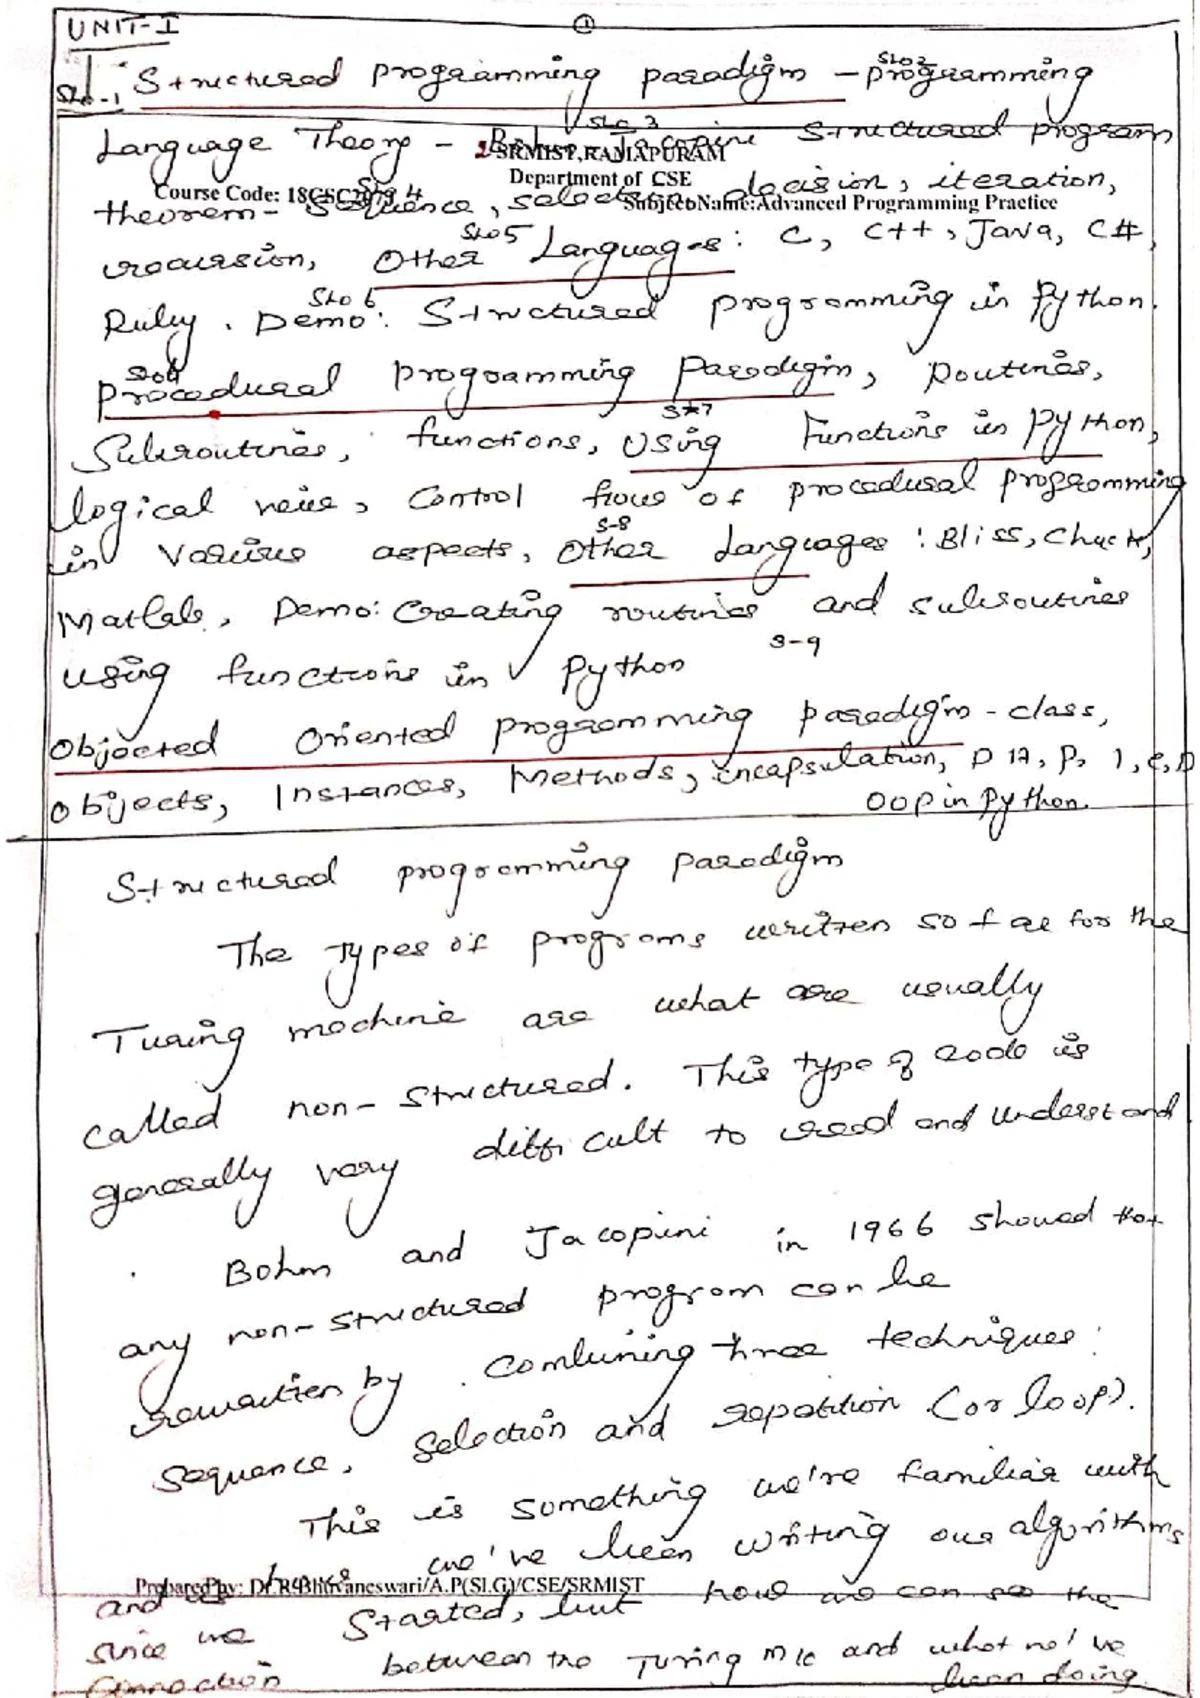 UNIT-I
1
Structured programming paradigm - programming
SLO-1
SLO 2
Language Theory - Bohm Jacopini structured program
SLO 3
2 SRMIST,RAMAPURAM
Department of CSE
Course Code: 18CSC207J Subject Name:Advanced Programming Practice
theorem - Sequence, selection decision, iteration,
4
recursion, Other Languages: C, C++, Java, C#,
SLO 5
Ruby. Demo: Structured programming in Python.
SLO 6
Procedural programming Paradigm, Routines,
Subroutines, functions, Using Functions in Python,
S-7
logical view, Control flow of procedural programming
in various aspects, Other Languages: Bliss, Chuck,
S-8
Matlab, Demo: Creating routines and subroutines
using functions in Python
S-9
Objected Oriented programming paradigm - class,
objects, Instances, Methods, encapsulation, D A, P, I, e, D
OOP in Python.
Structured programming Paradigm
The types of programs written so far for the
Turing machine are what are usually
called non-structured. This type of code is
generally very difficult to read and understand.
Bohm and Jacopini in 1966 showed that
any non-structured program can be
rewritten by combining three techniques:
sequence, selection and repetition (or loop).
This is something we're familiar with
we've been writing our algorithms
Prepared by: Dr.R.Bhuvaneswari/A.P(Sl.G)/CSE/SRMIST
and
since we started, but now we can see the
connection between the Turing m/c and what we've
been doing.